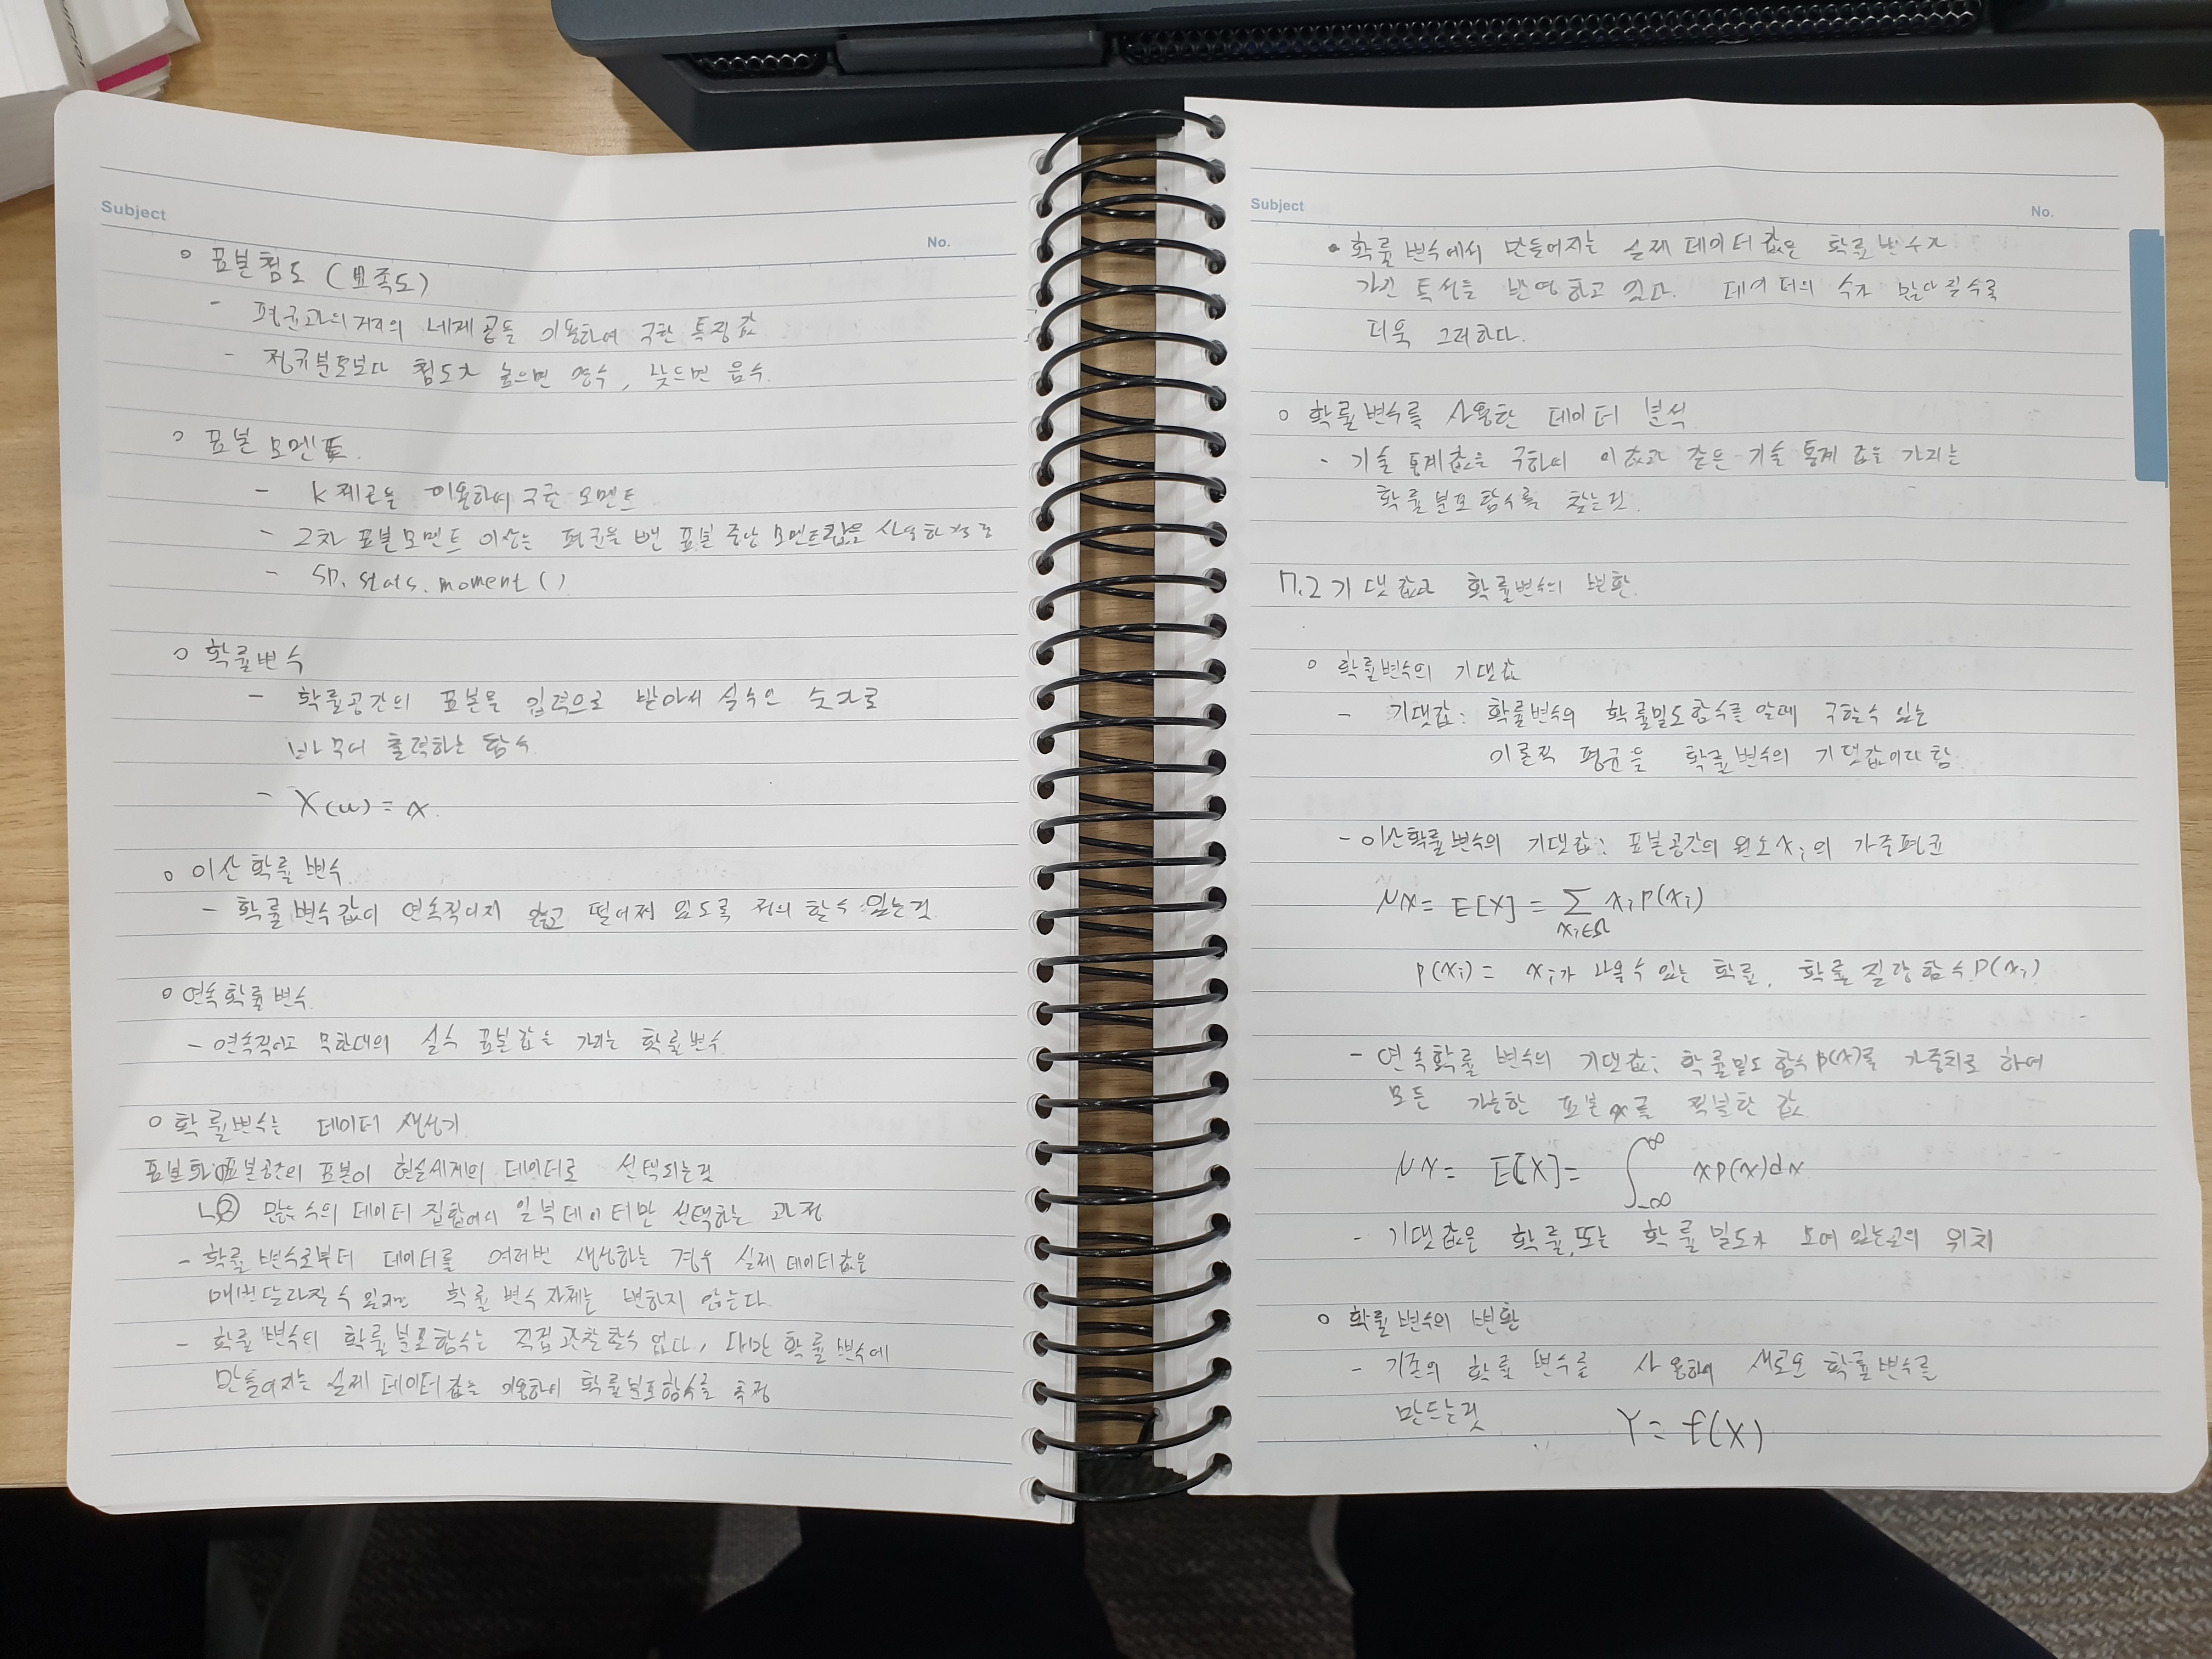 Subject
No.
○ 표본첨도 (뾰족도)
- 평균과의 거리의 네제곱을 이용하여 구한 특징값
- 정규분포보다 첨도가 높으면 양수, 낮으면 음수.
○ 표본 모멘트.
- k제곱을 이용하여 구한 모멘트
- 2차 표본모멘트 이상는 평균을 뺀 표본 중앙 모멘트값을 사용하
- SP. stats. moment ()
○ 확률변수
- 확률공간의 표본을 입력으로 받아서 실수인 숫자로
바꾸어 출력하는 함수.
- X(ω) = x.
○ 이산 확률 변수.
- 확률 변수값이 연속적이지 않고 떨어져 있도록 정의 할수 있는것.
○ 연속 확률 변수.
- 연속적이고 무한대의 실수 표본값을 가지는 확률변수.
○ 확률변수는 데이터 생성기.
표본화 ① 표본공간의 표본이 현실세계의 데이터로 선택되는것
ㄴ② 많은 수의 데이터 집합에서 일부데이터만 선택하는 과정
- 확률 변수로부터 데이터를 여러번 생성하는 경우 실제 데이터값은
매번 달라질 수 있지만 확률 변수 자체는 변하지 않는다.
- 확률 변수의 확률분포함수는 직접 관찰 할수 없다, 다만 확률 변수에
만들어지는 실제 데이터 값을 이용하여 확률분포함수를 추정
Subject
No.
• 확률변수에서 만들어지는 실제 데이터 값은 확률 변수가
가진 특성을 반영하고 있다. 데이터의 수가 많아질수록
더욱 그러하다.
○ 확률변수를 사용한 데이터 분석.
- 기술 통계값을 구하여 이값과 같은 기술 통계 값을 가지는
확률 분포 함수를 찾는것.
7.2 기댓값과 확률변수의 변환.
○ 확률변수의 기댓값
- 기댓값: 확률변수의 확률밀도함수를 알때 구할수 있는
이론적 평균을 확률변수의 기댓값이라 함.
- 이산확률변수의 기댓값: 표본공간의 원소 xi의 가중평균
μx = E[X] = ∑ xi p(xi)
xi∈Ω
p(xi) = xi가 나올수 있는 확률, 확률 질량 함수 P(xi)
- 연속확률 변수의 기댓값: 확률밀도 함수 p(x)를 가중치로 하여
모든 가능한 표본 x를 적분한 값.
μx = E[X] = ∫_{-∞}^{∞} xp(x)dx
- 기댓값은 확률, 또는 확률 밀도가 모여 있는곳의 위치
○ 확률 변수의 변환
- 기존의 확률 변수를 사용하여 새로운 확률변수를
만드는것 Y = f(X)